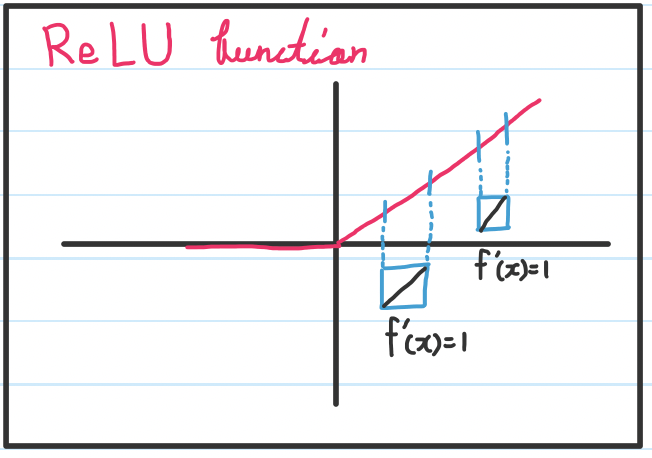 ReLU function
f'(x)=1
f'(x)=1